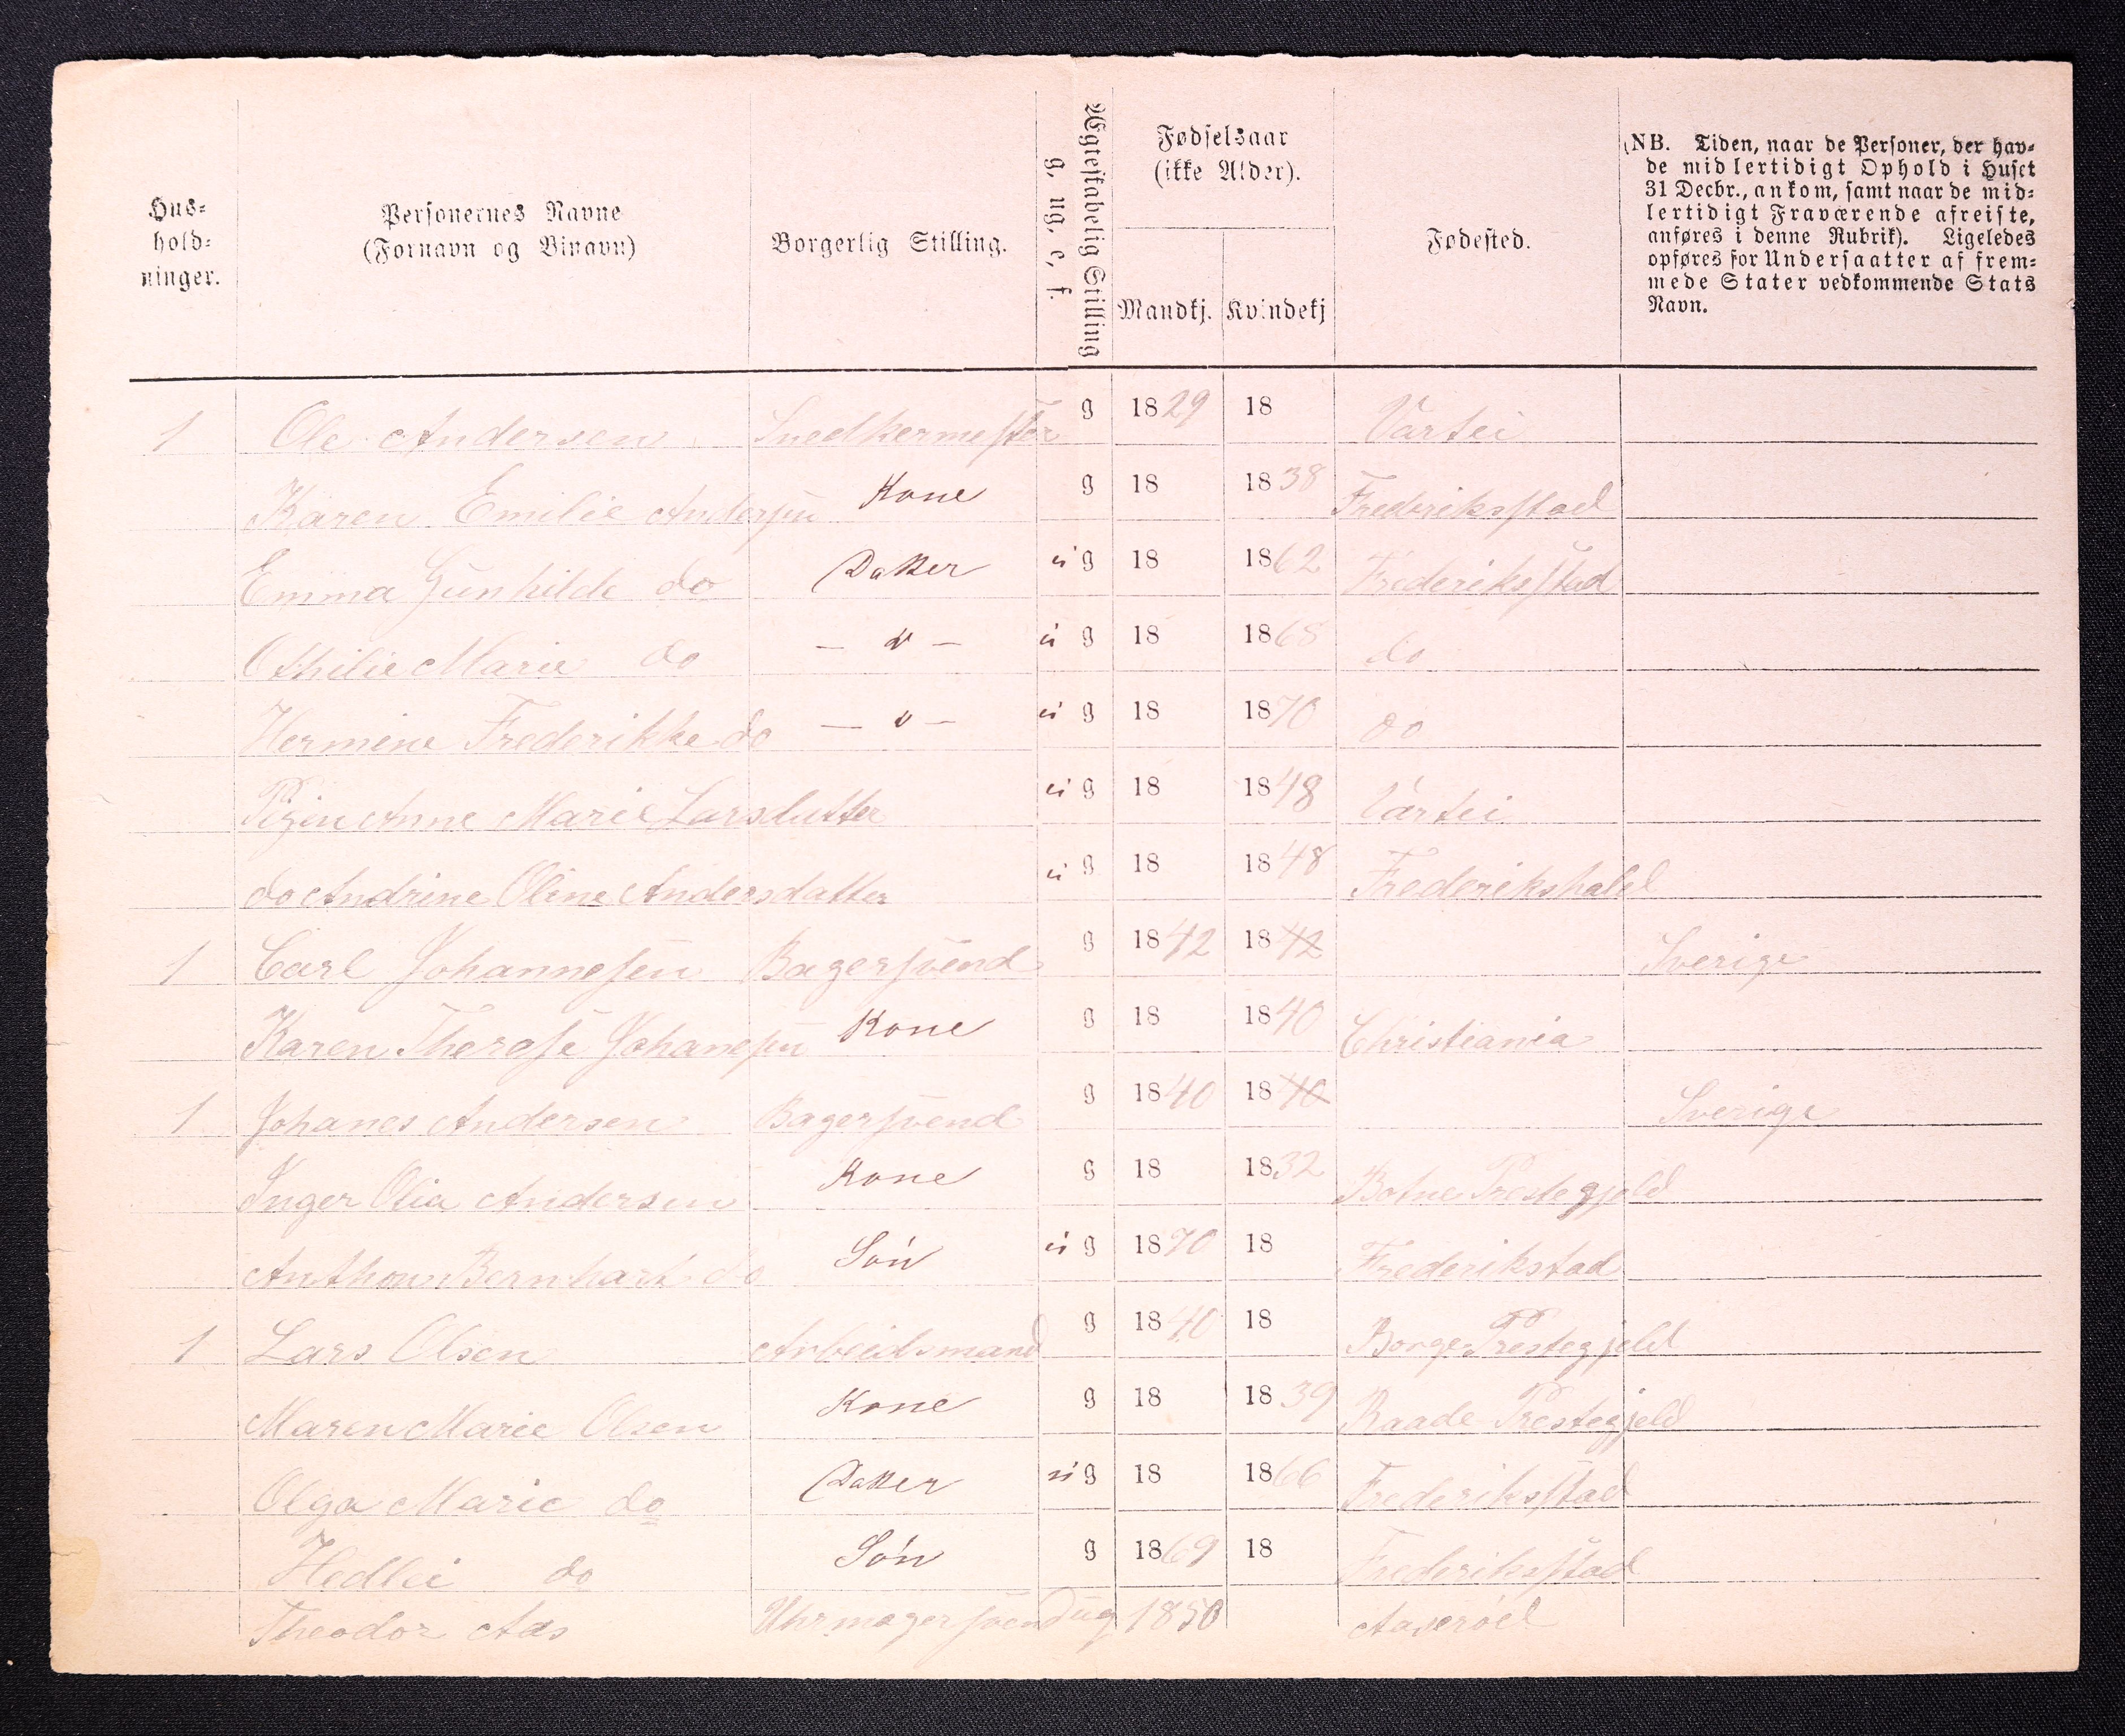 Hus-
hold-
ninger.
Personernes Navne
(Fornavn og Binavn)
Borgerlig Stilling.
Ægteskabelig Stilling
g, ug, e, f.
Fødselsaar
(ikke Alder).
Mandkj. Kvindekj
Fødested.
(NB. Tiden, naar de Personer, der hav-
de midlertidigt Ophold i Huset
31 Decbr., ankom, samt naar de mid-
lertidigt Fraværende afreiste,
anføres i denne Rubrik). Ligeledes
opføres for Undersaatter af frem-
mede Stater vedkommende Stats
Navn.
1 Ole Andersen Snedkermester g 1829 18 Vartei
Karen Emilie Andersen Kone g 18 1838 Frederiksstad
Emma Gunhilde do Datter ug 18 1862 Frederiksstad
Othilie Marie do — " — ug 18 1868 do
Hermine Frederikke do — " — ug 18 1870 do
Pigen Anne Marie Larsdatter ug 18 1848 Vartei
do Andrine Oline Andersdatter ug 18 1848 Frederikshald
1 Carl Johannesen Bagersvend g 1842 1842 Sverige
Karen Therese Johanesen Kone g 18 1840 Christiania
1 Johanes Andersen Bagersvend g 1840 1840 Sverige
Inger Olia Andersen Kone g 18 1832 Botne Prestegjeld
Anthon Bernhart do Søn ug 1870 18 Frederikstad
1 Lars Olsen Arbeidsmand g 1840 18 Borge Prestegjeld
Maren Marie Olsen Kone g 18 1839 Raade Prestegjeld
Olga Marie do Datter ug 18 1866 Frederiksstad
Hedlei do Søn g 1869 18 Frederiksstad
Theodor Aas Uhrmagersvend ug 1850